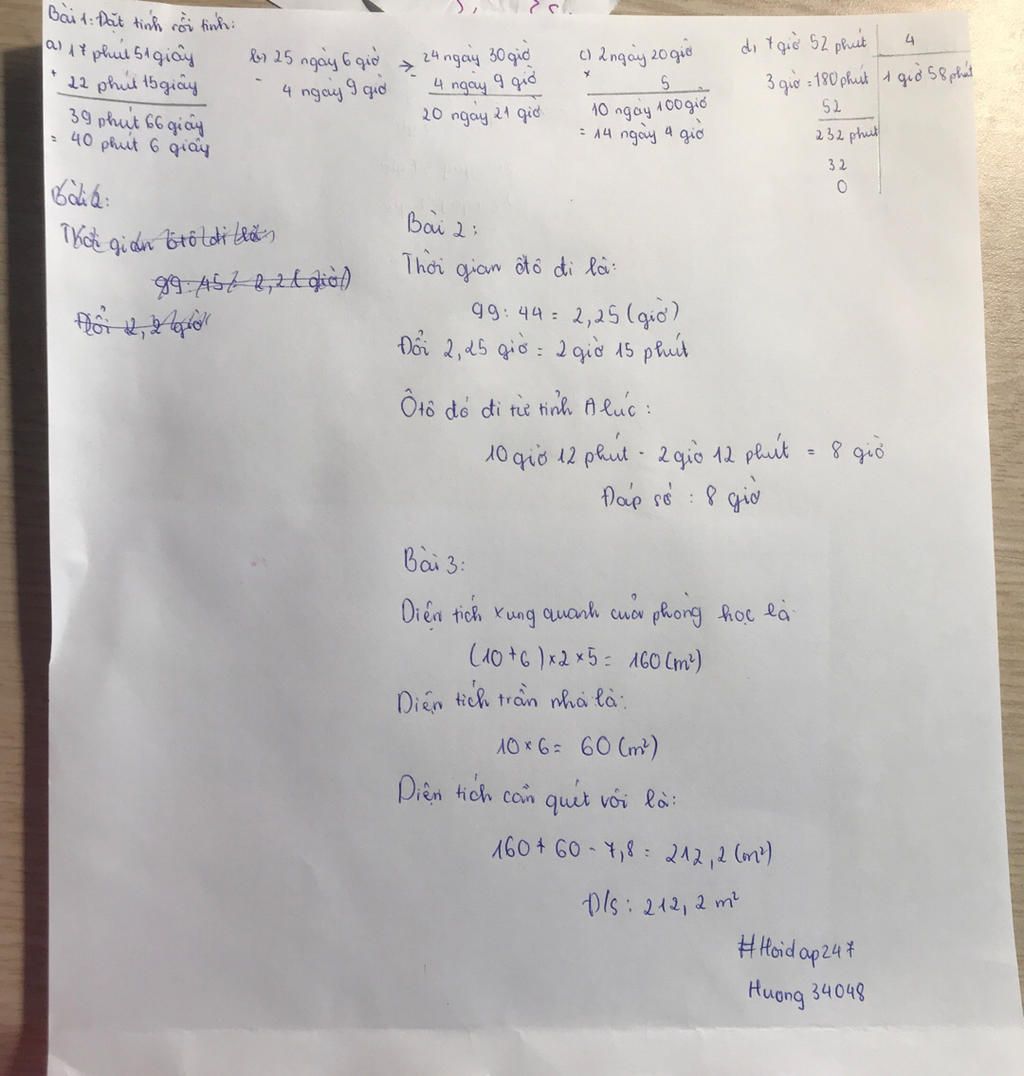 Bài 1: Đặt tính rồi tính:
a) 17 phút 51 giây
+ 22 phút 15 giây
39 phút 66 giây
= 40 phút 6 giây
b) 25 ngày 6 giờ
- 4 ngày 9 giờ
→ 24 ngày 30 giờ
- 4 ngày 9 giờ
20 ngày 21 giờ
c) 2 ngày 20 giờ
× 5
10 ngày 100 giờ
= 14 ngày 4 giờ
d) 7 giờ 52 phút 4
3 giờ = 180 phút 1 giờ 58 phút
52
232 phút
32
0
Bài 2:
Thời gian ôtô đi là
99 : 45 = 2,2 (giờ)
Đổi 2,2 giờ
Bài 2:
Thời gian ôtô đi là:
99 : 44 = 2,25 (giờ)
Đổi 2,25 giờ = 2 giờ 15 phút
Ôtô đó đi từ tỉnh A lúc:
10 giờ 12 phút - 2 giờ 12 phút = 8 giờ
Đáp số : 8 giờ
Bài 3:
Diện tích xung quanh của phòng học là
(10 + 6) × 2 × 5 = 160 (m²)
Diện tích trần nhà là:
10 × 6 = 60 (m²)
Diện tích cần quét vôi là:
160 + 60 - 7,8 = 212,2 (m²)
Đ/s : 212,2 m²
#Hoidap247
Huong 34048